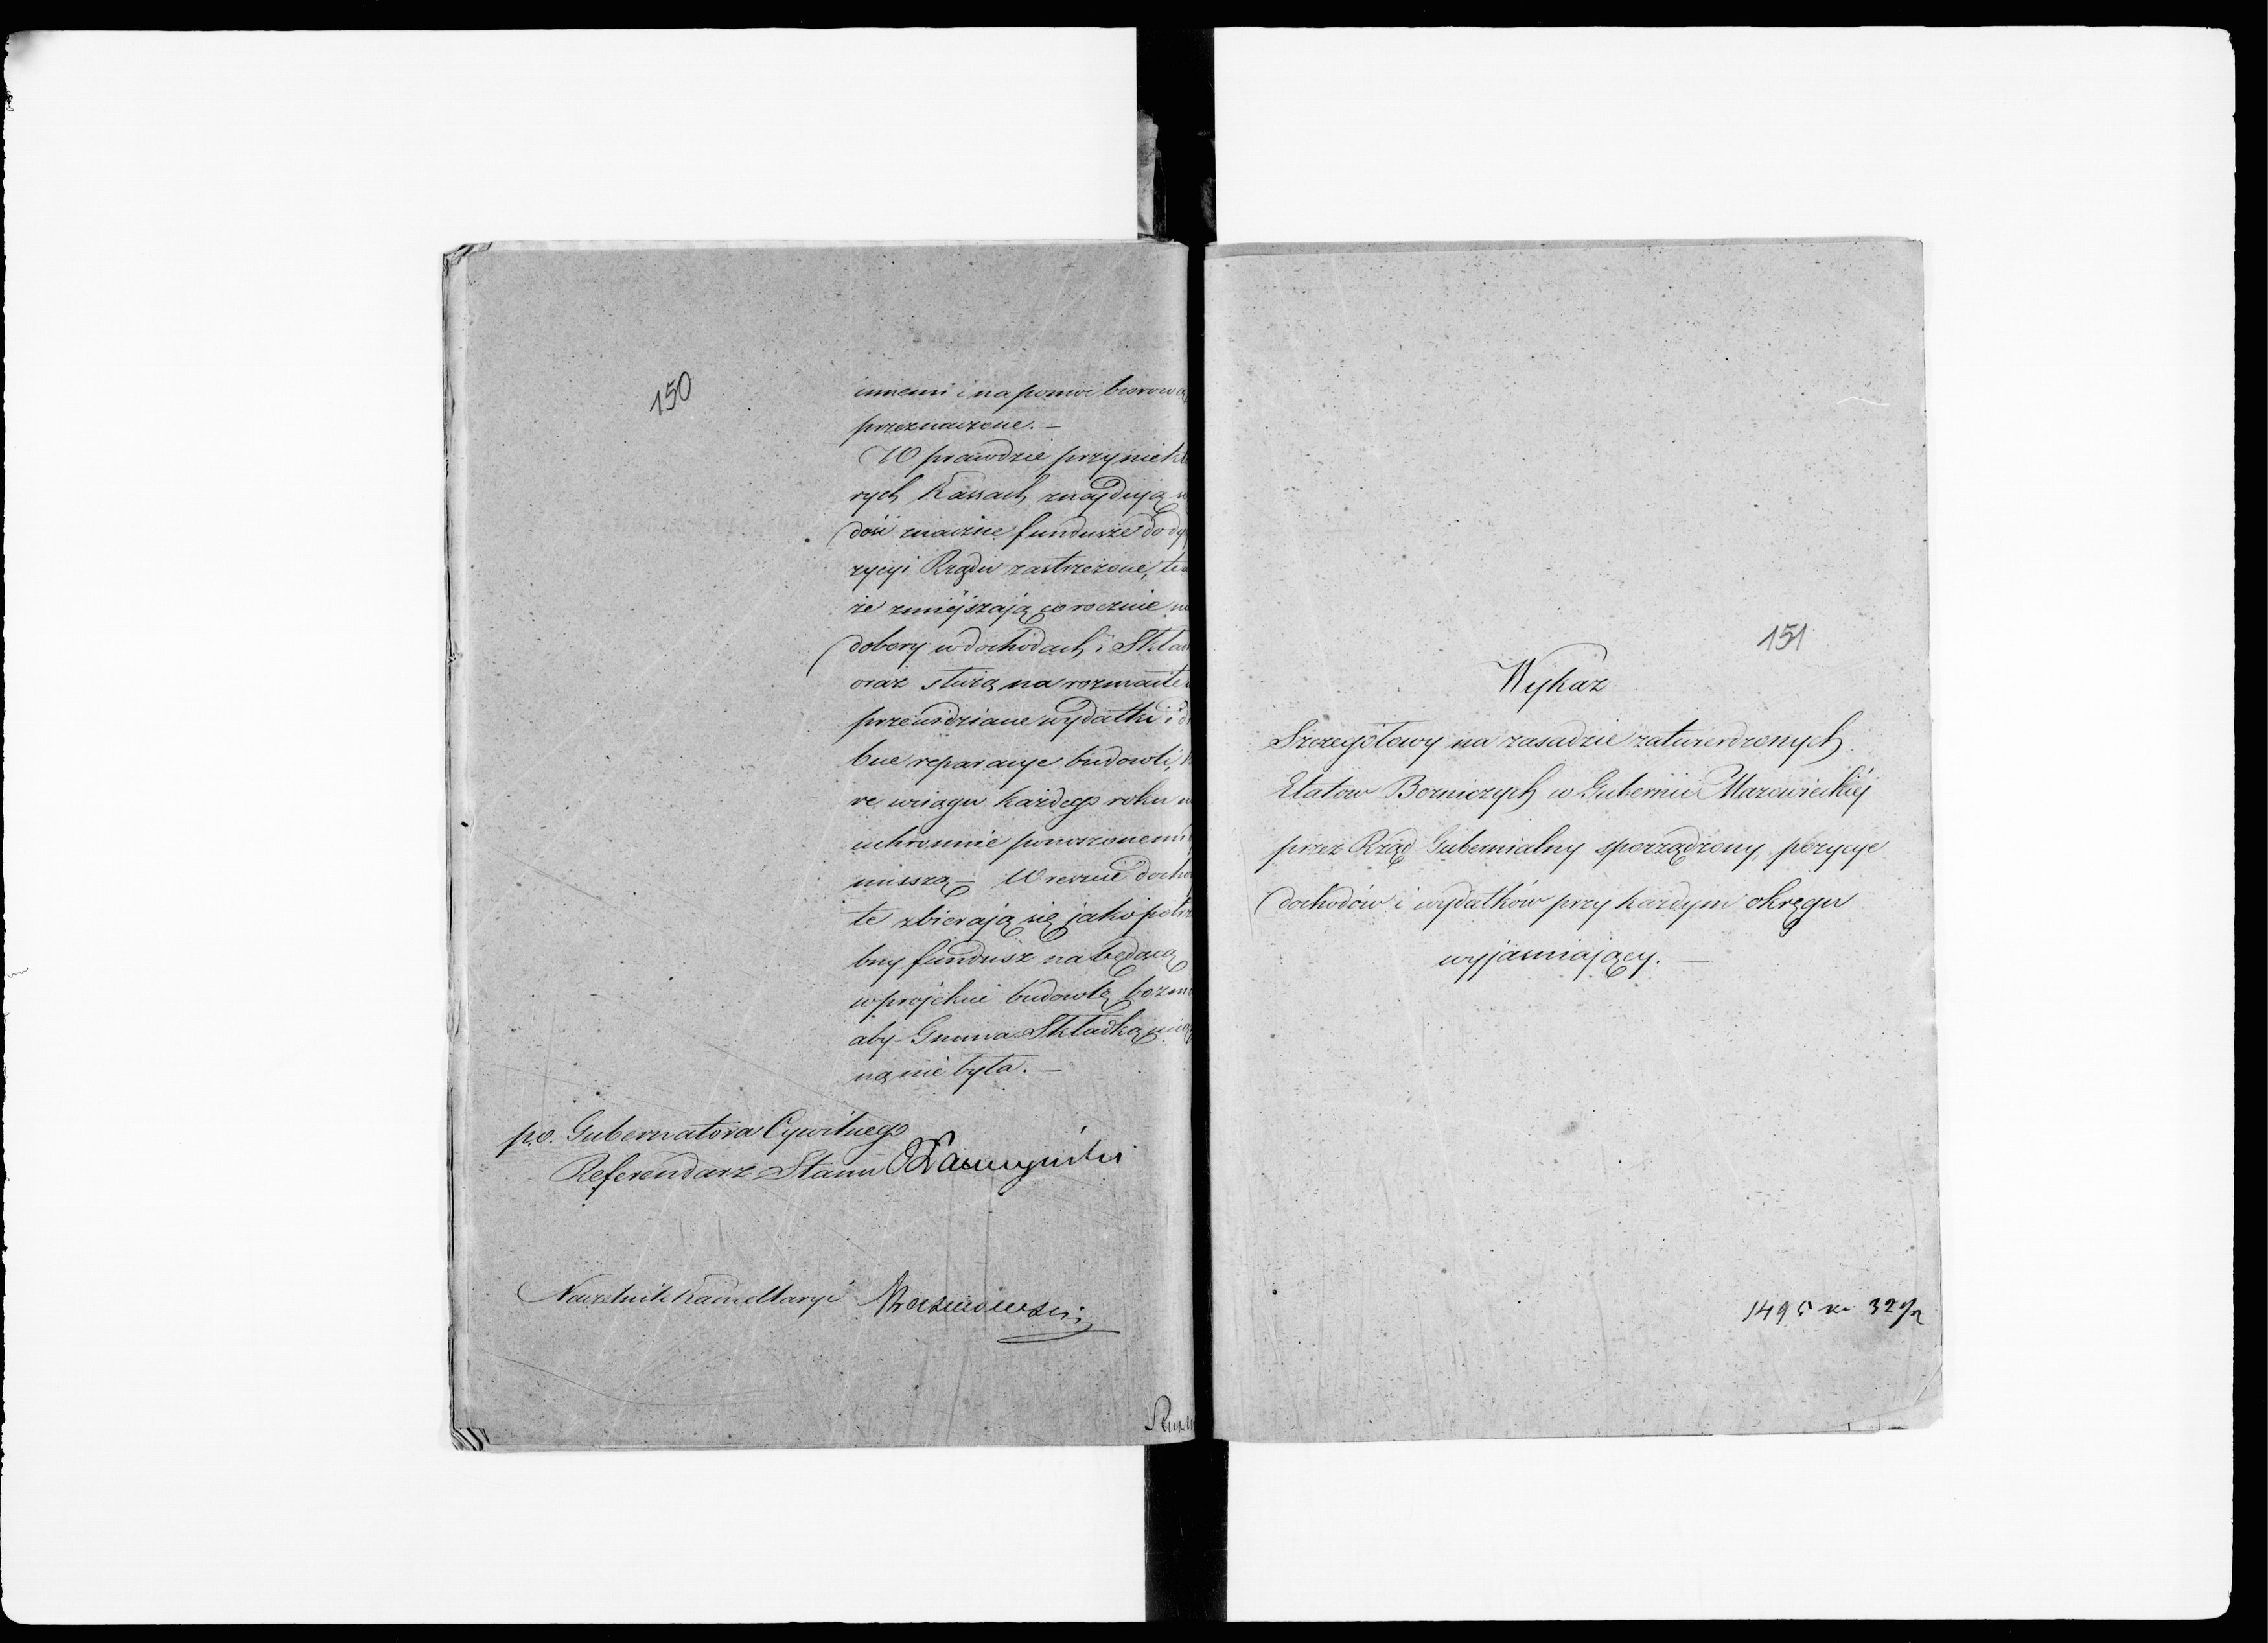 150
innemi i na pomoc biorową
przeznaczone. —
W prawdzie przy niektó
rych Kassach znajdują
dość znaczne fundusze do dy
zycyi Rządu zastrzeżone, te
że zmiejszają corocznie
dobory w dochodach i Skład
oraz służą na rozmaite
przewidziane wydatki i d
bne reparacye budowli,
re w ciągu każdego roku
uchronnie
muszą — W reszcie docho
te zbierają się jako potrze
bny fundusz na będącą
w projekcie budowlę bożni
aby Gmina Składką
ną nie była. —
p.o. Gubernatora Cywilnego
Referendarz Stanu
Naczelnik Kancellaryi
151
Wykaz
Szczegółowy na zasadzie zatwierdzonych
Etatow Bożniczych w Gubernii Mazowieckiéj
przez Rząd Gubernialny sporządzony, pozycye
dochodów i wydatków przy każdym okręgu
wyjaśniający. —
1495